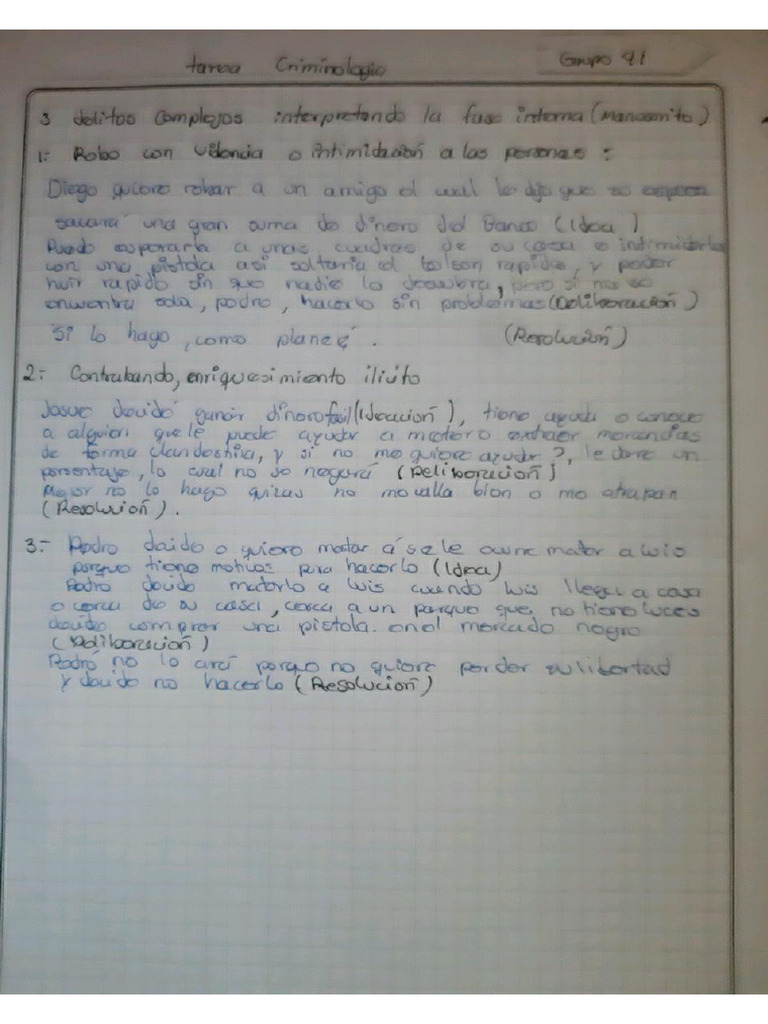 tarea Criminologia
Grupo 91
3 delitos complejos interpretando la fase interna (Manuscrito)
1- Robo con violencia o intimidación a las personas :
Diego quiere robar a un amigo el cual le dijo que su esposa
sacará una gran suma de dinero del Banco (Idea)
Puedo esperarla a unas cuadras de su casa e intimidarla
con una pistola asi soltaria el bolson rapido, y poder
huir rapido sin que nadie lo descubra, pero si no se
encuentra sola, podre, hacerlo sin problemas (Deliberación)
Si lo hago, como planeé. (Resolución)
2- Contrabando, enriquesimiento ilicito
Josue decidió ganar dinero facil (Ideación), tiene ayuda o conoce
a alguien que le puede ayudar a meter o extraer mercancias
de forma clandestina, y si no me quiere ayudar?, le dare un
porsentaje, lo cual no se negará (Deliberación)
Mejor no lo hago quizas no me valla bien o me atrapan
(Resolución).
3.- Pedro decide o quiere matar ó se le ocurre matar a luis
porque tiene motivos para hacerlo (Idea)
Pedro decide matarlo a luis cuando luis llega a casa
o cerca de su casa, cerca a un parque que no tiene luces
decide comprar una pistola en el mercado negro
(Deliberación)
Pedro no lo ará porque no quiere perder su libertad
y decide no hacerlo (Resolución)